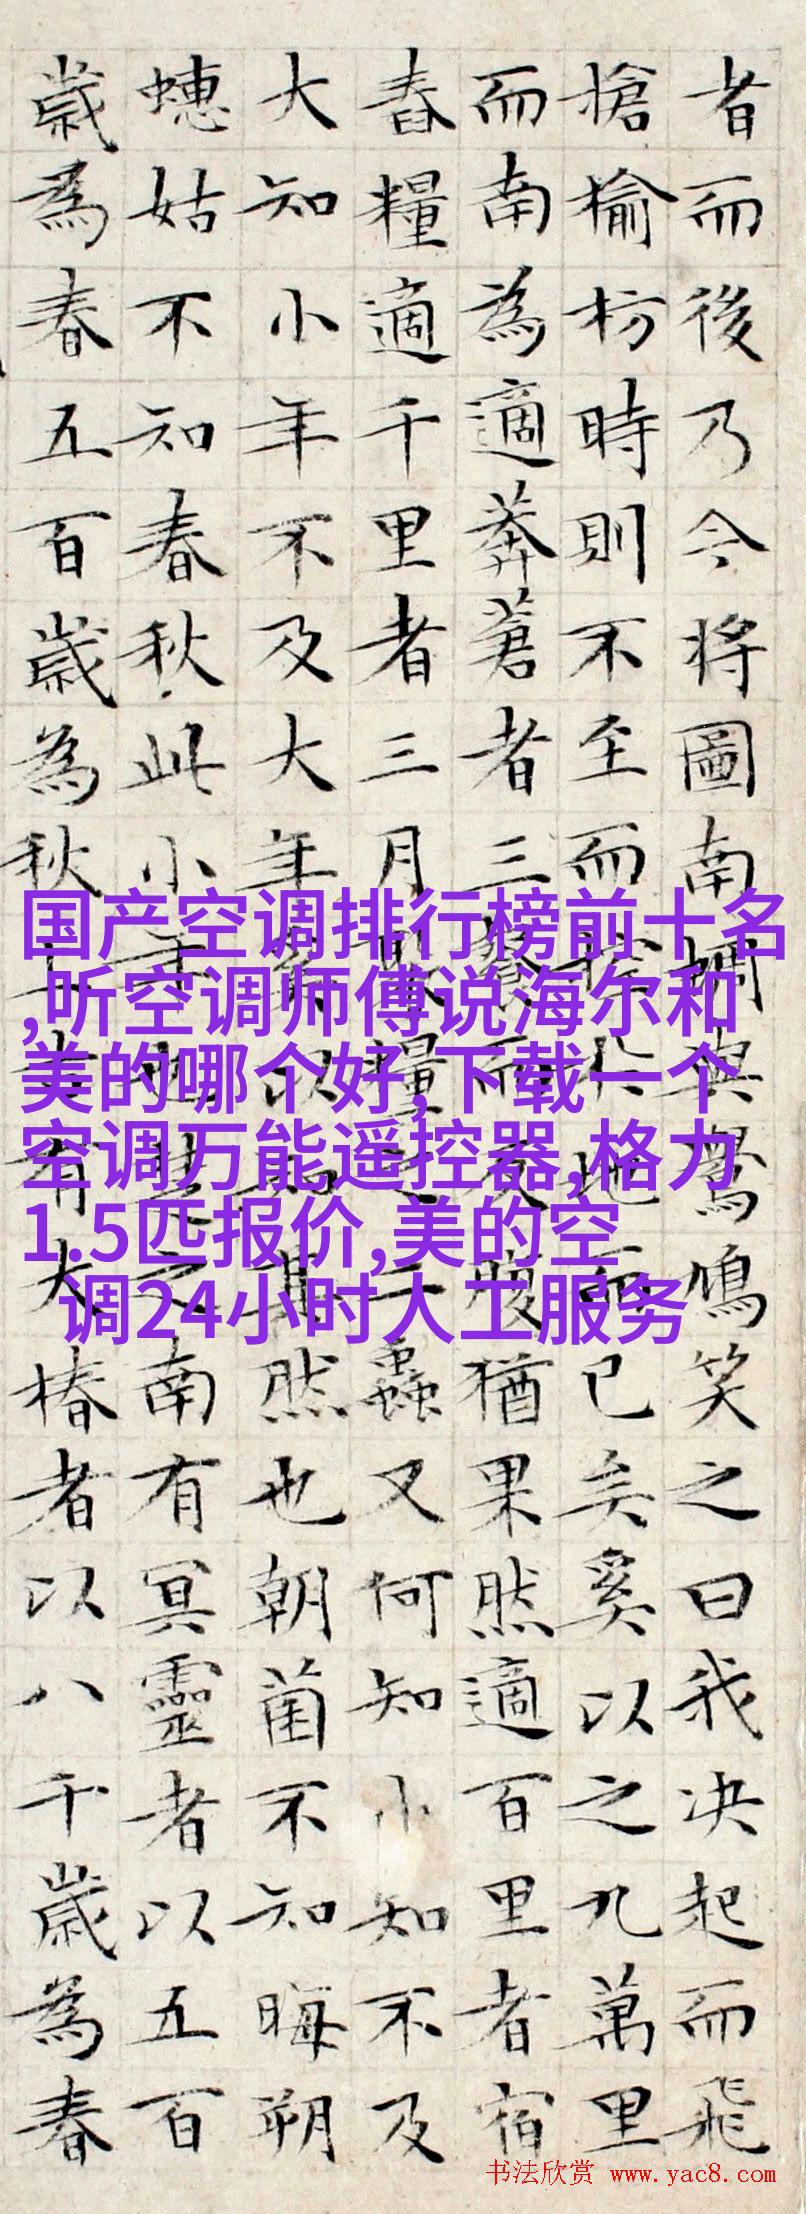 者而後乃今将圖南蜩與鷽鳩笑之曰我决起而飛
搶榆枋時則不至而控於地而已矣奚以之九萬里
而南為適莽蒼者三飡而反腹猶果然適百里者宿
舂糧適千里者三月聚糧之二蟲又何知小知不及
大知小年不及大年奚以知其然也朝菌不知晦朔
蟪姑不知春秋此小年也楚之南有冥靈者以五百
歲為春五百歲為秋上古有大椿者以八千歲為春
国产空调排行榜前十名
,听空调师傅说海尔和
美的哪个好,下载一个
空调万能遥控器,格力
1.5匹报价,美的空
调24小时人工服务
书法欣赏 www.yac8.com